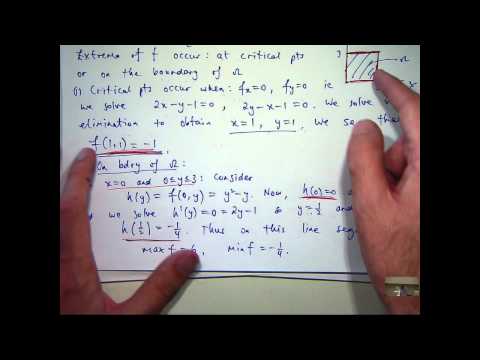 Extrema of f occur: at critical pts
or on the boundary of Ω
(i) Critical pts occur when: fx=0, fy=0 ie
we solve 2x-y-1=0, 2y-x-1=0. We solve
elimination to obtain x=1, y=1. We see
f(1,1) = -1
On bdry of Ω:
x=0 and 0≤y≤3: Consider
h(y) = f(0,y) = y²-y. Now, h(0)=0
we solve h'(y)=0=2y-1 y=½ and
h(½) = -¼. Thus on this line seg
max f = 6, min f = -¼.
y
Ω
x